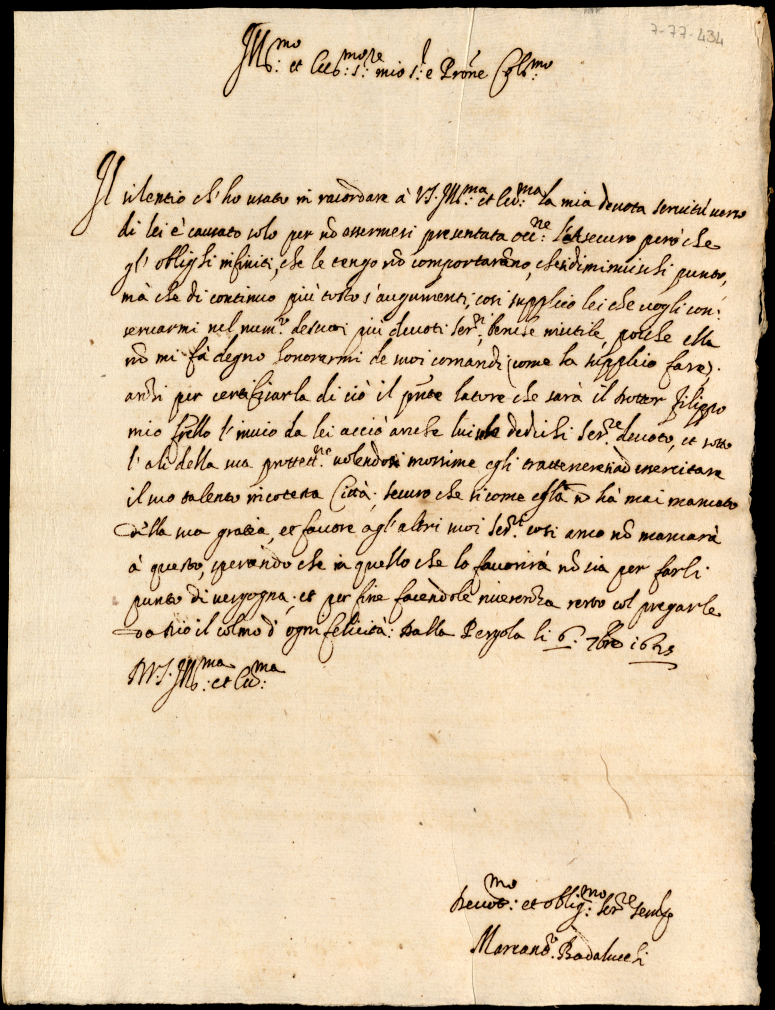 7-77-434
Ill:mo et Ecc:mo sre mio s:r e Prone Col:mo
Il silentio ch'ho usato in racordare à VS. Ill:ma et Ecc:ma la mia devota servitù verso
di lei è causato solo per nō essermesi presentata occ:ne l'assecuro però che
gl'oblighi infiniti, che le tengo nō comportarāno, che si diminuischi punto,
mà che di continuo più tosto s'augumenti, così supplico lei che vogli con:
servarmi nel num:o de suoi più devoti ser:ri benche inutile, poiche ella
nō mi fà degno honorarmi de suoi comandi (come la supplico fare).
anzi per certificarla di ciò il pnte latore che sarà il Dottor Filippo
mio frello l'invio da lei acciò anche lui le dedichi ser:re devoto, et sotto
l'ali della sua prottett:ne volendosi massime egli trattenere ad esercitare
il suo talento in cotesta Città; securo che si come ella nō hà mai mancato
della sua gratia, et favore agl'altri suoi ser:ri così anco nō mancarà
à questo, sperando che in quello che lo favorirà nō sia per farli
punto di vergogna; et per fine facendole riverenza resto col pregarle
da Dio il colmo d'ogni felicità: Dalla Pergola li 6: 7bre
D.V.S. Ill:ma et Ecc:ma
Devot:mo et oblig:mo ser:re sempre
Marcant:o Badalucchi